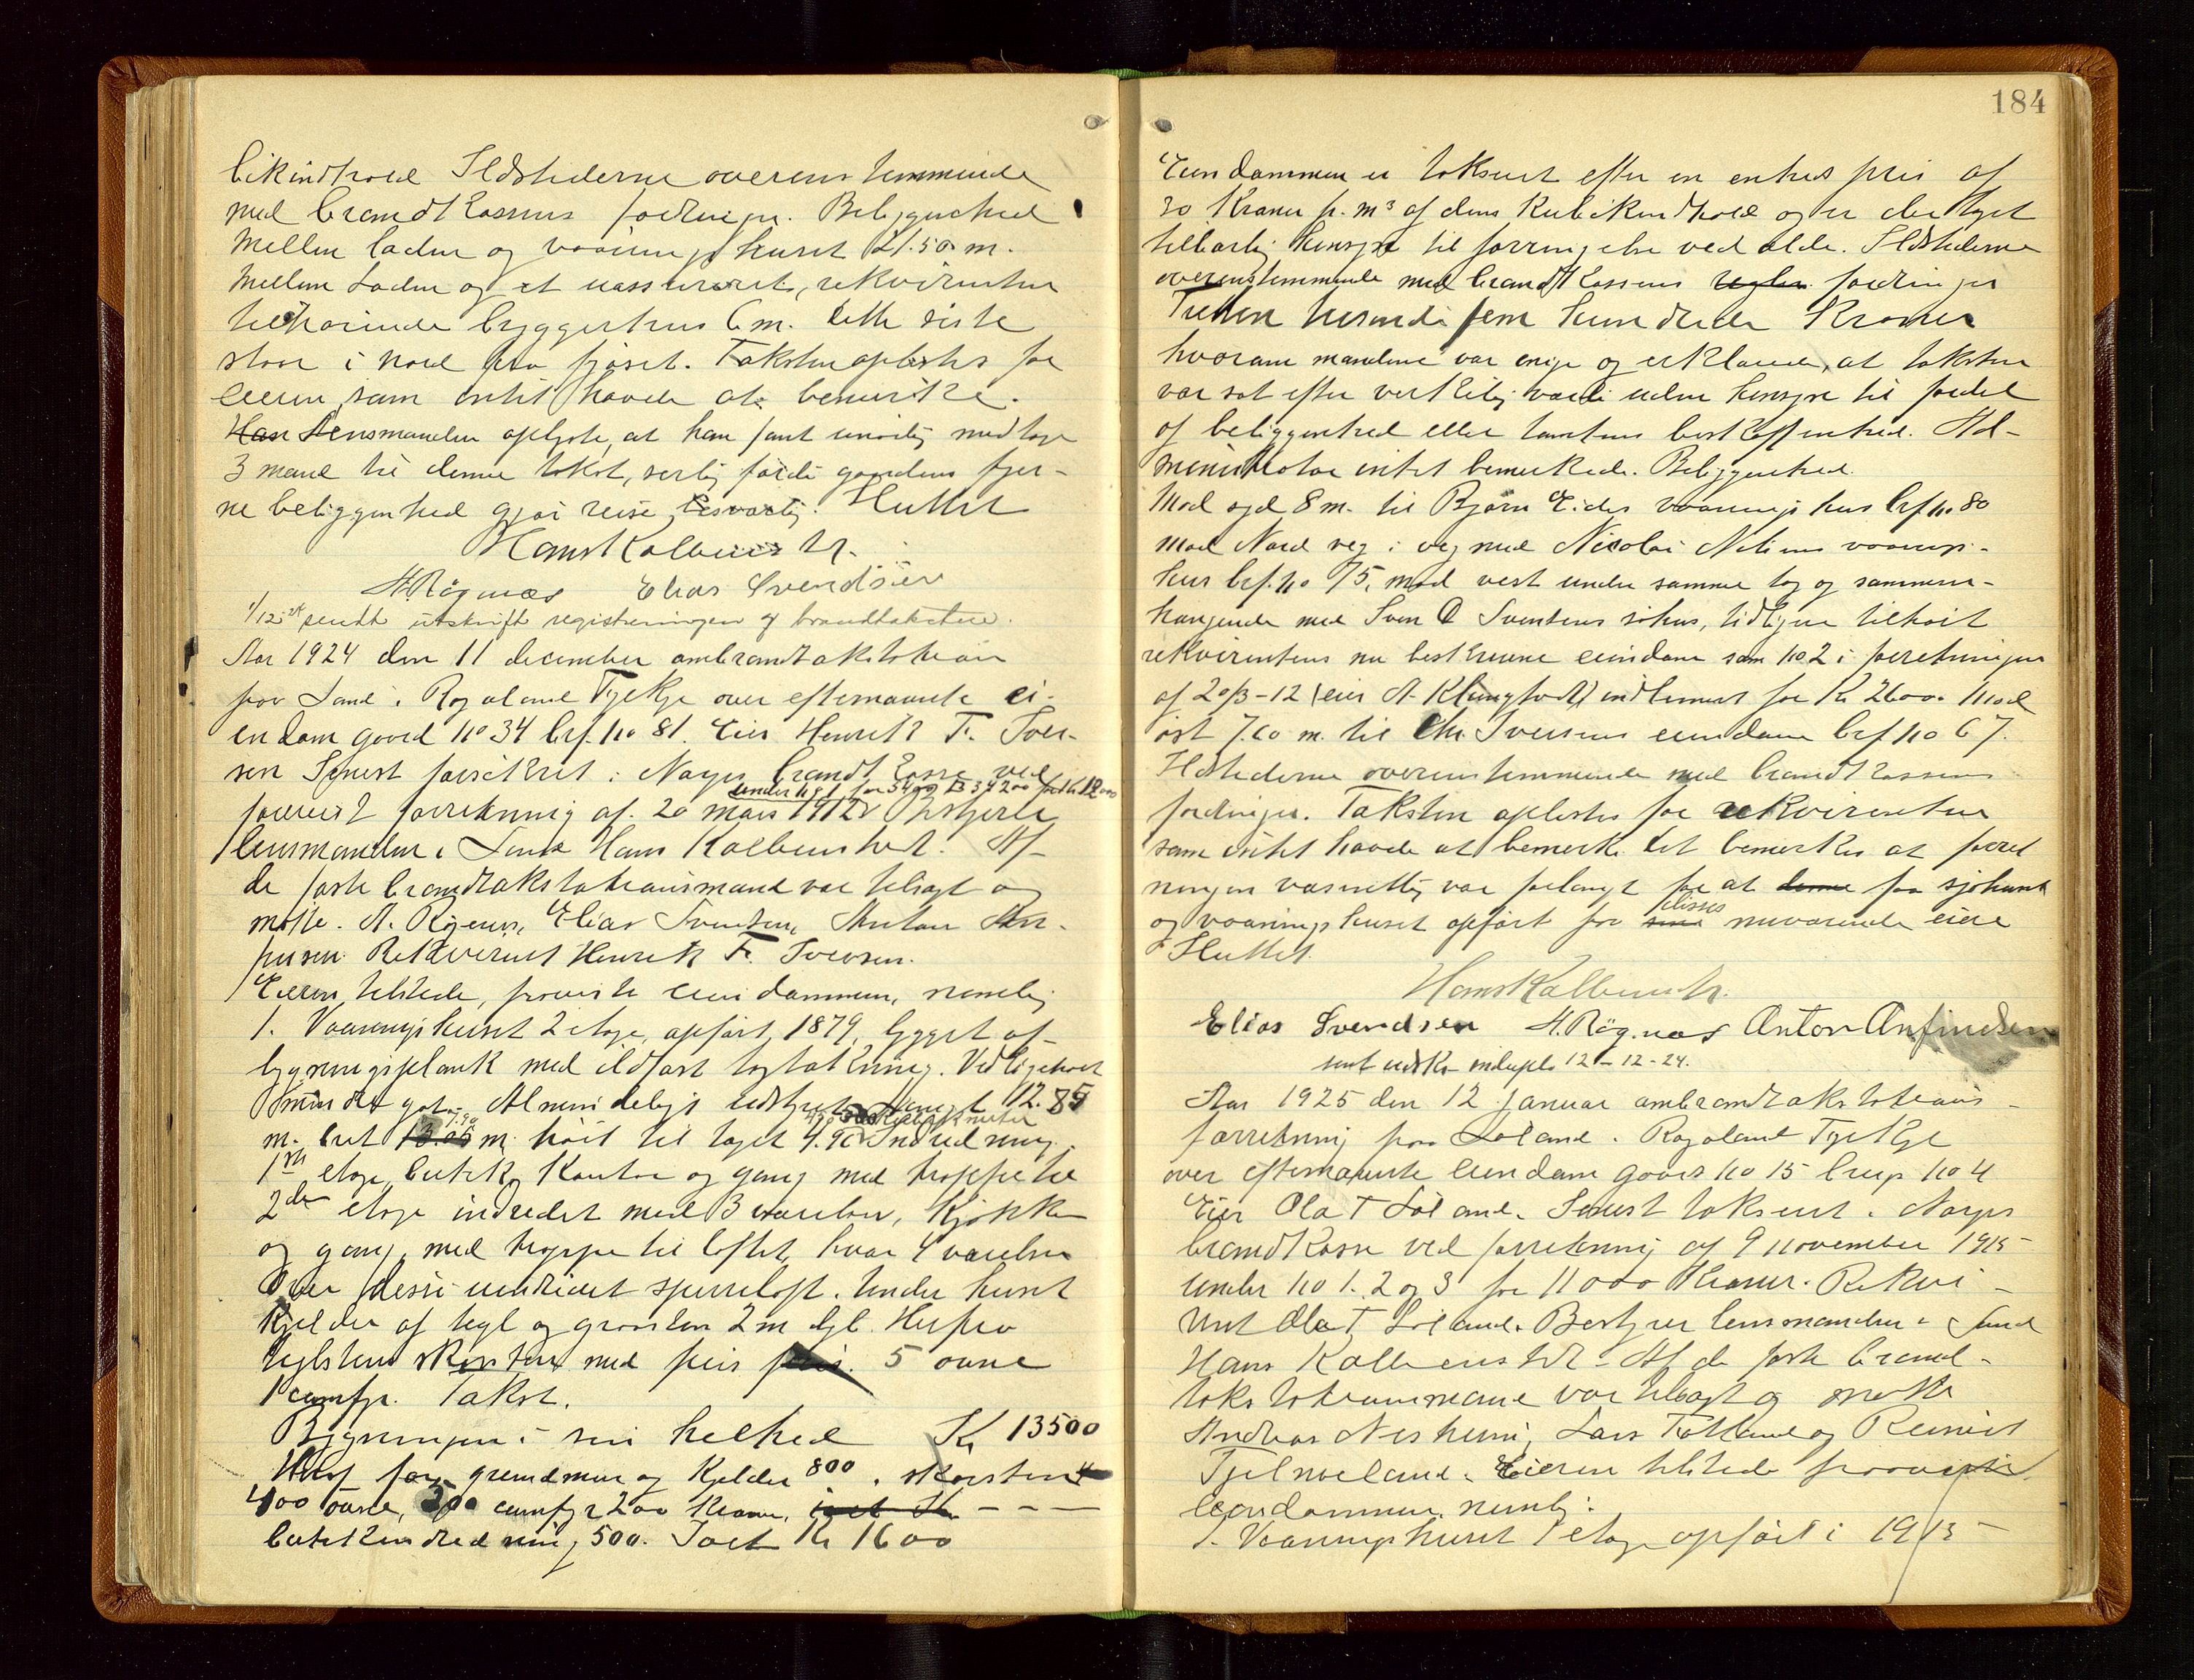 bikindhold Ildstederne overenstemmende
med brandkassens fordringer. Beliggenhed
Mellem laden og vaaningshuset 21.50 m.
Mellem Laden og et uassureret, rekvirenten
tilhørende byggerhus 6 m. dette siste
staar i nord fra fjøset. Taksten oplestes for
eieren, som intet havde at bemerke.
Han Lensmanden oplyste, at han fant unødig medtage
3 mand til denne takst, serlig fordi gaardens fjer-
ne beliggenhed gjør reise besværlig. Sluttet
Hans Kolbenstv.
A. Rögnæs Elias Svendsen
1/12 24 sendt utskrift registreringen af brandtaksterne.
Aar 1924 den 11 december ombrandtakstation
paa Sand i Rogaland Fylke over efternævnte ei-
endom gaard no 34 brf. no 81. Eier Henrik F. Iver-
sen Senest forsikret i Norges brandkasse ved
under no 1 for 5400 no 3 34200
foreviist forretning af 20 mars 1912. Bestyrer
lensmanden i Sand Hans Kolbenstvedt. Af
de faste brandtakstationsmænd var tilsagt og
møtte. A. Rögnes, Elias Svendsen, Anton An-
finsen. Rekvirent Henrik F. Iversen.
Eieren tilstede, paaviste eiendommen, nemlig
1. Vaaningshuset 2 etage, opført 1879, bygget af
bygningsplank med ildfast tagtækning. Vedligehold
mindre god. Almindeligt udstyret. Langt 12.85
m. bret 13.05 7.90 m. høit til taget 4.90 Indredning
1ste etage, butik, Kontor og gang med trappe til
2den etage indredet med 3 værelser, Kjøkken
og gang, med trappe til loftet, hvor 4 værelser
Over disse uindredet sperreloft. Under huset
Kjelder af tegl og graasten 2 m dyb. Herfra
teglstens skorsten med peis peis. 5 ovne
1 comfyr. Takst.
Bygningen i sin helhed Kr 13500
Heraf for grundmur og Kjelder 800, skorsten
400 ovne, 200 comfyr 200 Kroner, i alt Kr - - -
butikkindredning 500. I alt Kr 1600
184
Eiendommen er takseret efter en enheds pris af
30 Kroner pr. m3 af dens Kubikindhold og er der taget
tilbørlig hensyn til forringelse ved ælde. Ildstederne
overenstemmende med brandkassens regler fordringer
Tretten tusende fem hundrede Kroner
hvorom mændene var enige og erklærede, at taksten
var sat efter verkelig værdi uden hensyn til fordel
af beliggenhed eller tomtens beskaffenhed. Ad-
ministrator intet bemerkede. Beliggenhed.
Mod syd 8 m. til Bjørn Eides vaaningshus brf no 80
mod Nord veg i veg med Nicolai Nilsens vaanings-
hus brf. no 75, mod vest under samme tag og sammen-
hængende med Sven O Svensens sjøhus, tidligere tilhørt
rekvirentens nu beskrevne eiendom som no 2 i forretningen
af 20/3-12 (eier A. Klungtvedt) indlemmet for Kr 2600. Mod
øst 7.60 m. til Chr. Iversens eiendom brf no 67.
Ildstederne overenstemmende med brandkassens
fordringer. Taksten oplestes for rekvirenten
som intet havde at bemerke. Det bemerkes at forret
ningen væsentlig var forlangt for at denne faa sjøhuset
og vaaningshuset opført for sine disses nuværende eiere
Sluttet.
Hans Kolbenstv.
Elias Svendsen A. Rög.næs Anton Anfindsen
sent udskr. 12-12-24.
Aar 1925 den 12 januar ombrandtakstations-
forretning paa Løland i Rogaland Fylke
over efternævnte eiendom gaards no 15 brugs no 4
Eier Ola T Løland. Senest takseret i Norges
brandkasse ved forretning af 9 november 1915
under no 1. 2 og 3 for 11000 Kroner. Rekvi-
rent Ola T. Løland. Bestyrer lensmanden i Sand
Hans Kolbenstvedt. Af de faste brand-
takstationsmænd var tilsagt og møtte
Andreas Nesheim, Lars Tøtland og Reinert
Fjelmeland. Eieren tilstede paaviste
eiendommen, nemlig:
1. Vaaningshuset 1 etage opført i 1915